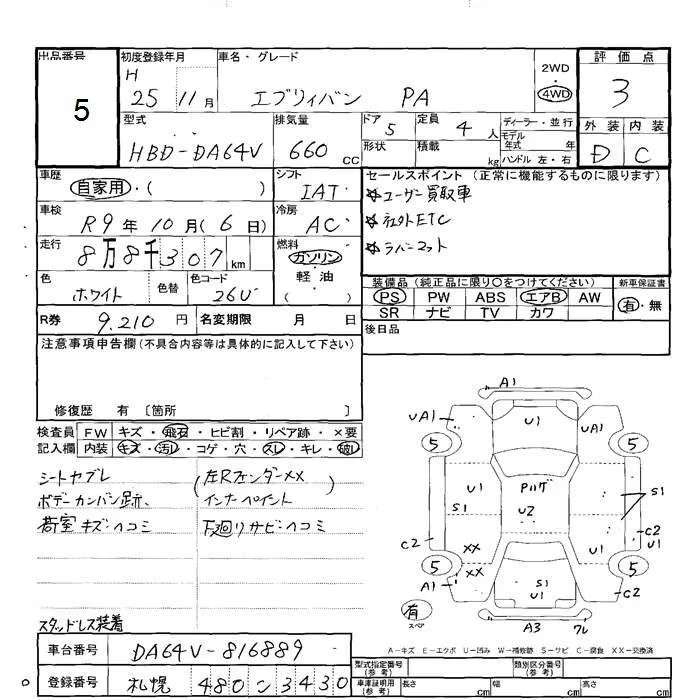 出品番号
5
初度登録年月
H
25 11月
車名・グレード
エブリィバン PA
2WD
・
4WD
評価点
3
外装 内装
D C
型式
HBD-DA64V
排気量
660 cc
ドア 5
形状
定員 4 人
積載 kg
ディーラー・並行
モデル
年式 年
ハンドル 左・右
車歴
自家用・( )
シフト
IAT
車検
R9年10月(6日)
冷房
AC
走行
8万8千307 km
燃料
ガソリン
軽油
( )
色
ホワイト
色替
色コード
26U
R券 9,210 円
名変期限 月 日
セールスポイント(正常に機能するものに限ります)
☆ユーザー買取車
☆社外ETC
☆ラバーマット
装備品(純正品に限り○をつけてください)
PS PW ABS エアB AW
SR ナビ TV カワ
新車保証書
有・無
後日品
注意事項申告欄(不具合内容等は具体的に記入して下さい)
修復歴 有 〔箇所 〕
検査員
記入欄
FW キズ・飛石・ヒビ割・リペア跡・×要
内装 キズ・汚レ・コゲ・穴・スレ・キレ・破レ
シートヤブレ
ボデーカンバン跡、
荷室キズ・ヘコミ
(左Rフェンダー××
インナーペイント)
下廻りサビ・ヘコミ
スタッドレス装着
A1
UA1 U1 UA1
5 5
U1 Pハゲ
S1 U2 S1
C2 XX U1 C2
U1
5 XX 5
A1 S1 C2
U1
有
スペア
A3 ワレ
A-キズ E-エクボ U-凹み W-補修跡 S-サビ C-腐食 XX-交換済
車台番号 DA64V-816889
登録番号 札幌 480 ン 3430
型式指定番号
(参考)
類別区分番号
(参考)
車庫証明用
(参考)
長さ cm
幅 cm
高さ cm